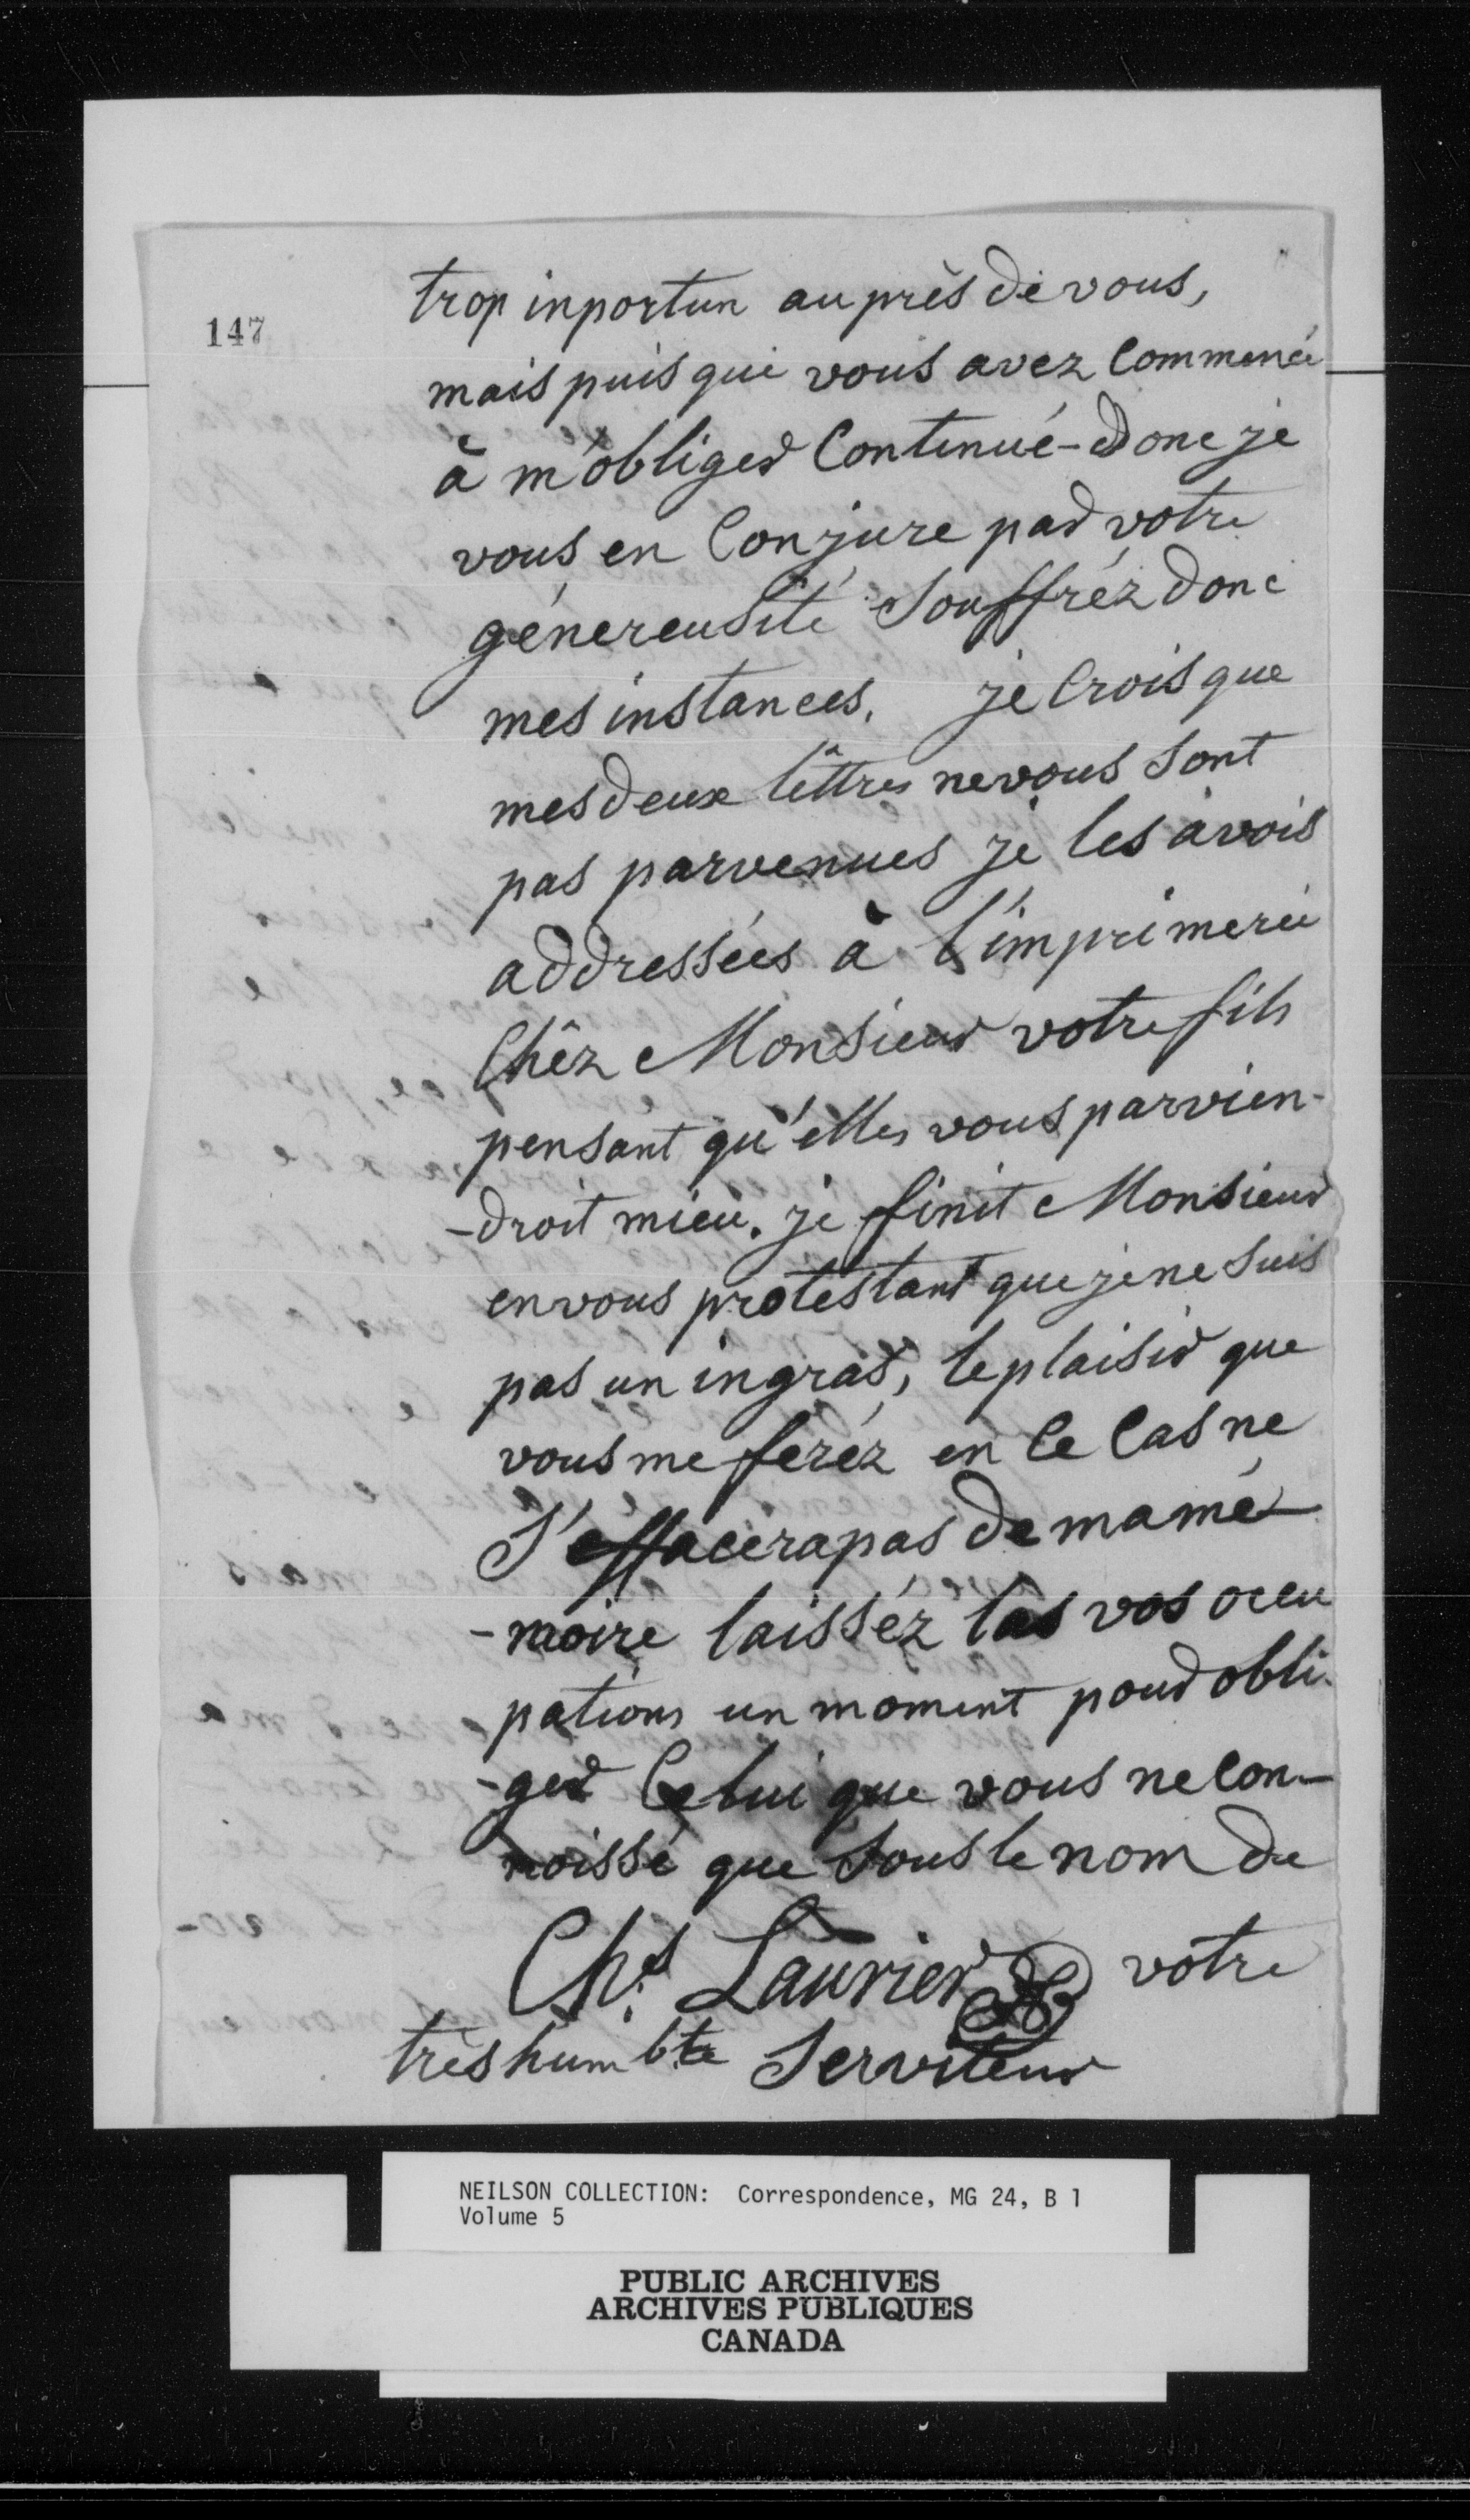 147
trop inportun au près de vous,
mais puis que vous avez Commencé
à m'obliger Continué-Donc je
vous en Conjure par votre
génereusité Souffréz donc
mes instances. je Crois que
mes deux lêttres ne vous sont
pas parvenues je les avois
addressées à l'imprimerie
Chêz Monsieur votre fils
pensant qu'elles vous parvien-
-droit mieu. je finit Monsieur
en vous protestant que je ne suis
pas un ingrat, le plaisir que
vous me feréz en Ce Cas ne
S'effacera pas de ma mé-
-moire laisséz las vos occu
pations un moment pour obli-
-ger Celui que vous ne Con-
noissé que sous le nom de
Chs. Laurier votre
très humble Serviteur
NEILSON COLLECTION: Correspondence, MG 24, B 1
Volume 5
PUBLIC ARCHIVES
ARCHIVES PUBLIQUES
CANADA